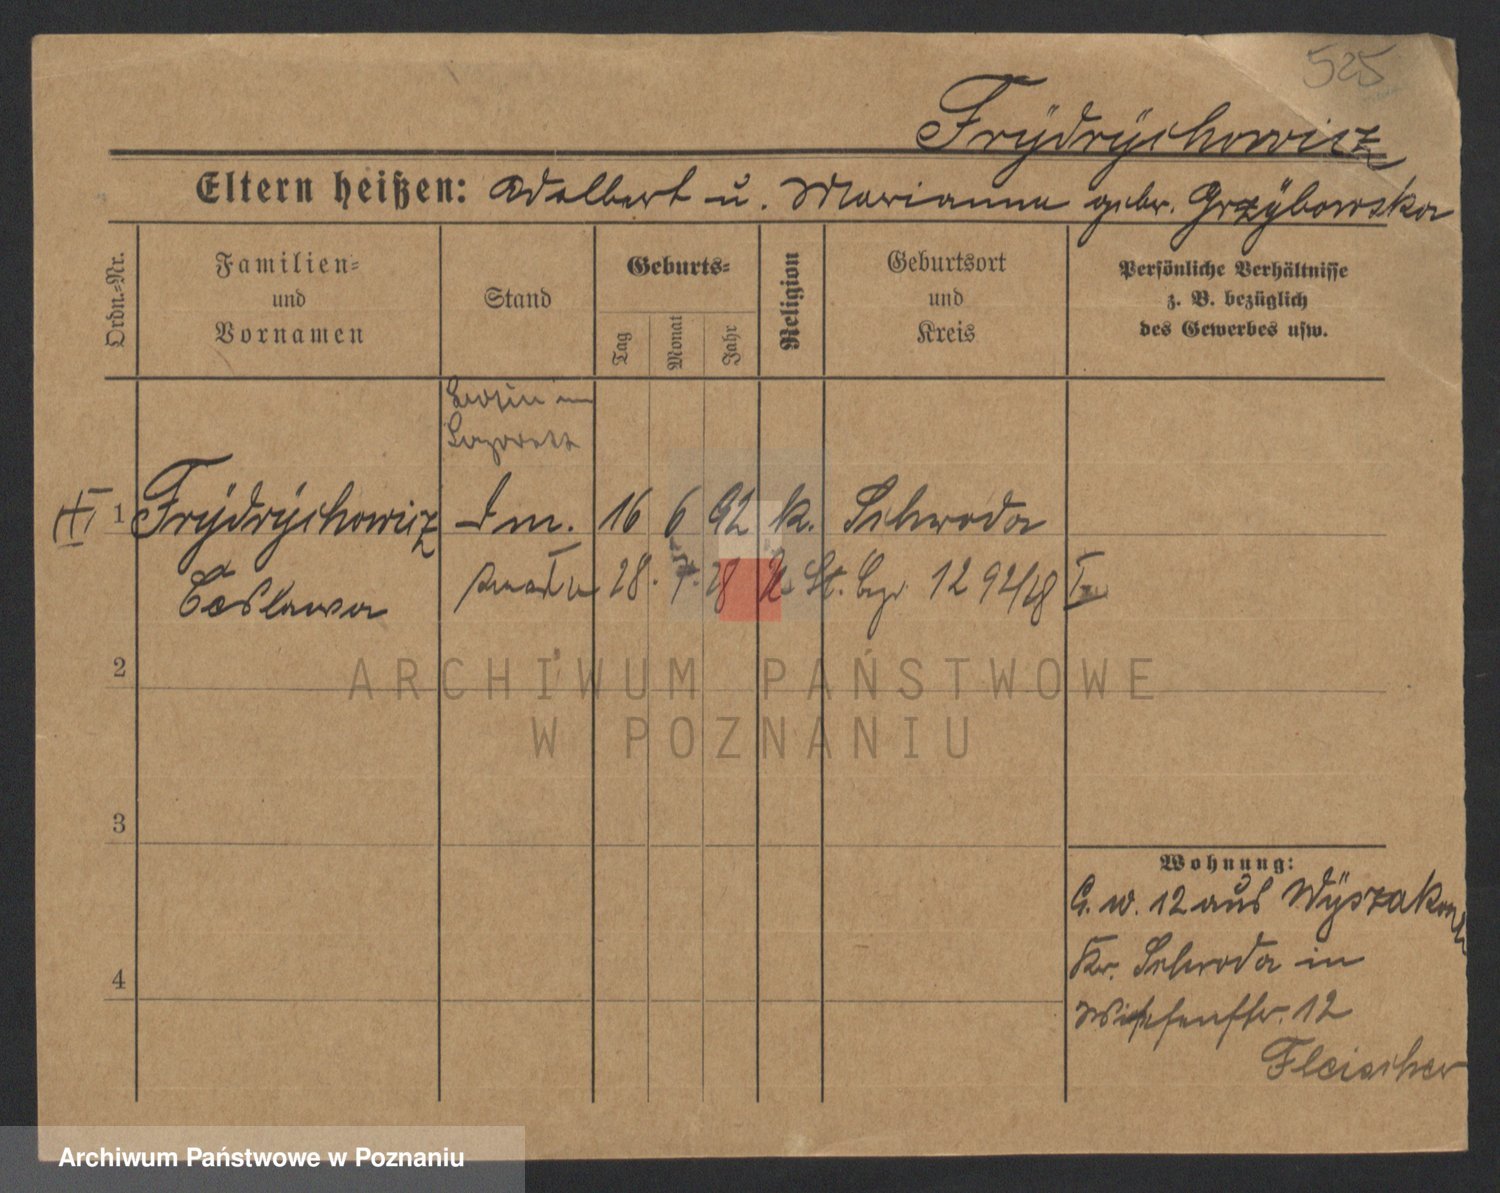 525
Frÿdrÿchowicz
Eltern heißen: Adalbert u. Marianna gebr. Grzÿbowska
Ordn.-Nr.
Familien-
und
Vornamen
Stand
Geburts-
Tag
Monat
Jahr
Religion
Geburtsort
und
Kreis
Persönliche Verhältnisse
z. B. bezüglich
des Gewerbes usw.
im
Lazarett
1 Frÿdrÿchowicz 16 6 92 k. Schroda
Ceslawa 28. 12 92/18
2
3
4
Wohnung:
G. w. 12 aus Wÿszakowo
Kr. Schroda in
12
Fleischer
ARCHIWUM PAŃSTWOWE
W POZNANIU
Archiwum Państwowe w Poznaniu